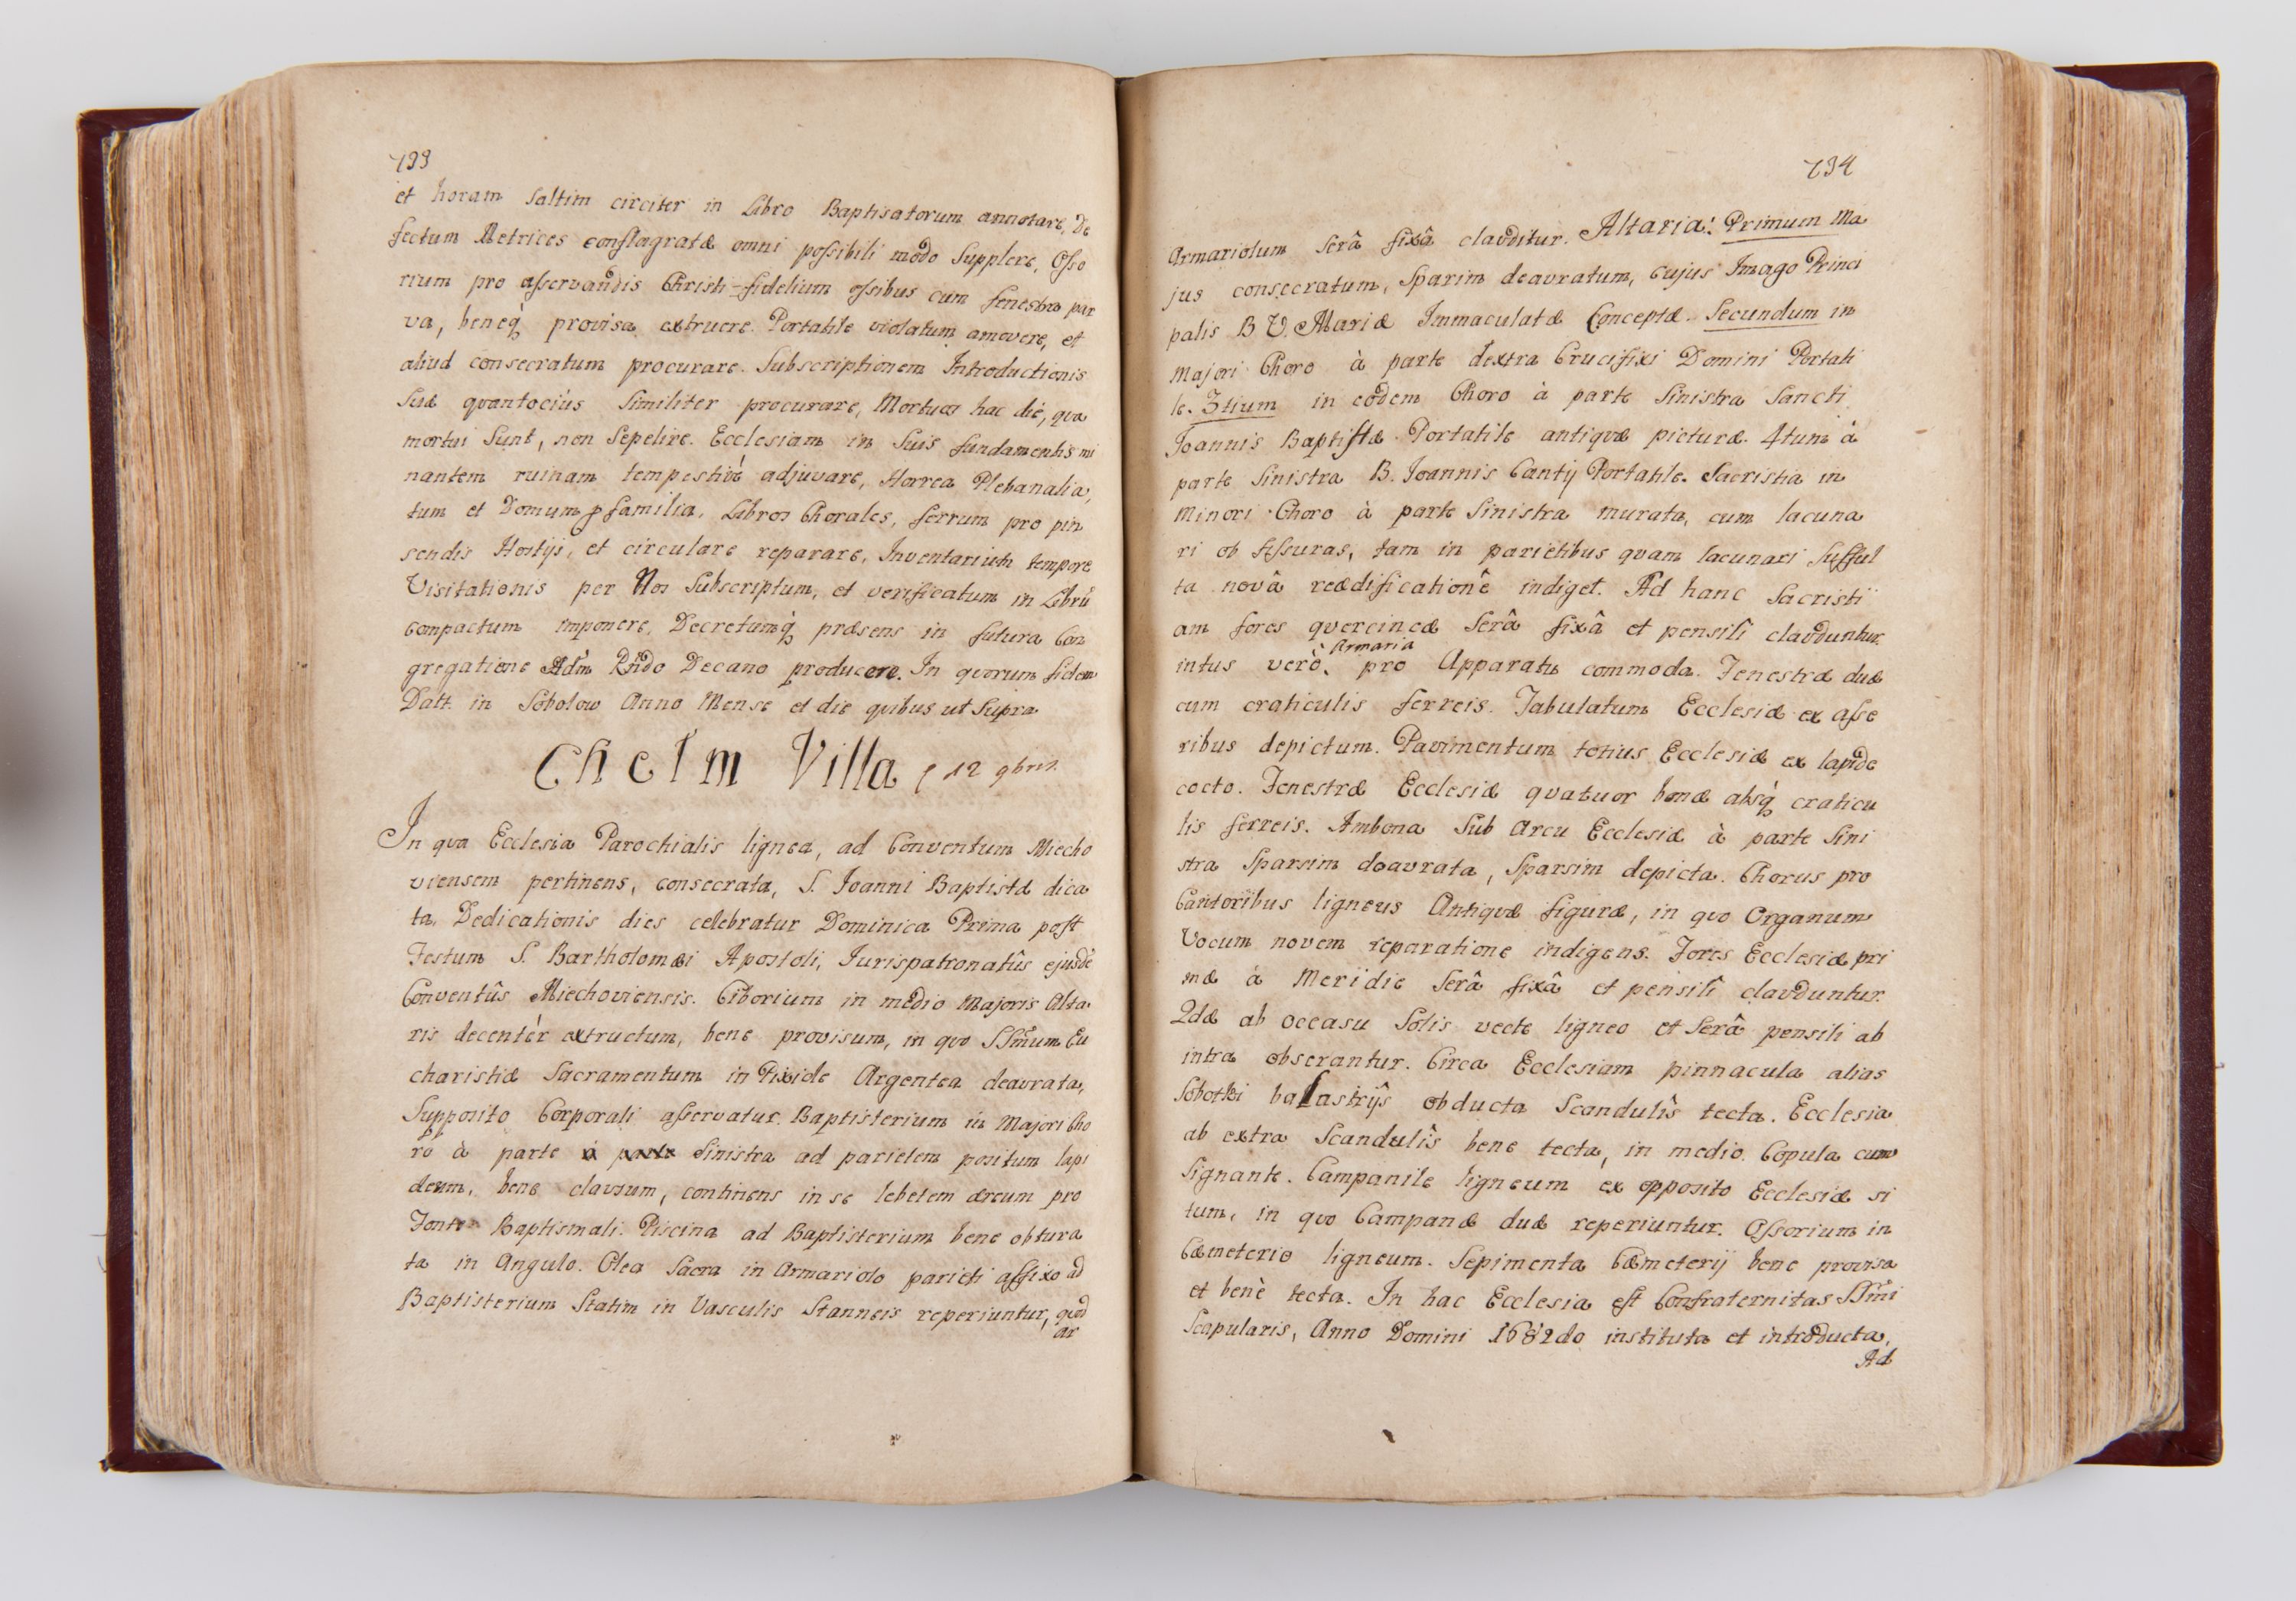 733
et horam saltim circiter in Libro Baptisatorum annotare, De
fectum Metrices conflagratæ omni possibili modo supplere, Osso
rium pro asservandis Christi-fidelium ossibus cum fenestra par
va, beneq́ provisa extruere. Portatile violatum amovere, et
aliud consecratum procurare. Subscriptionem Introductionis
suæ quantociús similiter procurare, Mortuos hac die, qua
mortui sunt, non sepelire. Ecclesiam in suis fundamentis mi
nantem ruinam tempestivé adjuvare, Horrea Plebanalia,
tum et Domum familia, Libros Chorales, ferrum pro pin
sendis Hostijs, et circulare reparare, Inventarium tempore
Visitationis per Nos subscriptum, et verificatum in Librū
compactum imponere, Decretumq́ præsens in futura Con
gregatione Adm̃ Rñdo Decano producere. In quorum fidem
Datt. in Sobolow Anno Mense et die quibus ut supra
Chełm Villa 12 9bris
In qua Ecclesia Parochialis lignea, ad Conventum Miecho
viensem pertinens, consecrata, S. Joanni Baptistæ dica
ta, Dedicationis dies celebratur Dominica Prima post
Festum S. Bartholomæi Apostoli, Jurispatronatûs ejusdē
Conventûs Miechoviensis. Ciborium in medio Majoris Alta
ris decentér extructum, bene provisum, in quo SSm̃um Eu
charistiæ Sacramentum in Pixide Argentea deaurata,
supposito Corporali asservatur. Baptisterium in Majori Cho
ro à parte á parte sinistra ad parietem positum lapi
deum, bene clausum, continens in se lebetem æreum pro
Fonte Baptismali. Piscina ad Baptisterium bene obtura
ta in Angulo. Olea Sacra in Armariolo parieti affixo ad
Baptisterium statim in Vasculis Stanneis reperiuntur, quod
ar
734
Armariolum serâ fixâ clauditur. Altaria: Primum Ma
jus consecratum, sparim deauratum, cujus Imago Princi
palis B V. Mariæ Immaculatæ Conceptæ. Secundum in
Majori Choro à parte dextra Crucifixi Domini Portati
le. 3tium in eodem Choro à parte sinistra Sancti
Joannis Baptistæ. Portatile antiquæ picturæ. 4tum à
parte sinistra B. Joannis Cantij Portatile. Sacristia in
Minori Choro à parte sinistra murata, cum lacuna
ri ob fissuras, tam in parietibus quam lacunari sufful
ta novâ reædificationê indiget. Ad hanc Sacristi
am fores quercineæ serâ fixâ et pensilî clauduntur.
Armaria
intus verò pro Apparatu commoda. Fenestræ duæ
cum craticulis ferreis. Tabulatum Ecclesiæ ex asse
ribus depictum. Pavimentum totius Ecclesiæ ex lapide
cocto. Fenestræ Ecclesiæ quatuor bonæ absq́ craticu
lis ferreis. Ambona sub Arcu Ecclesiæ à parte sini
stra sparsim deaurata, sparsim depicta. Chorus pro
Cantoribus ligneus Antiquæ figuræ, in quo Organum
Vocum novem reparatione indigens. Fores Ecclesiæ pri
mæ á Meridie serâ fixâ et pensilî clauduntur.
2dæ ab occasu Solis vecte ligneo et serâ pensili ab
intra obserantur. Circa Ecclesiam pinnacula alias
Sobotki balastrijs obducta scandulîs tecta. Ecclesia
ab extra scandulîs bene tecta, in medio Copula cum
signante. Campanile ligneum ex opposito Ecclesiæ si
tum, in quo Campanæ duæ reperiuntur. Ossorium in
Cæmeterio ligneum. Sepimenta Cæmeterij bene provisa
et benè tecta. In hac Ecclesia est Confraternitas SSm̃i
Scapularis, Anno Domini 1682do instituta et introducta,
Ad